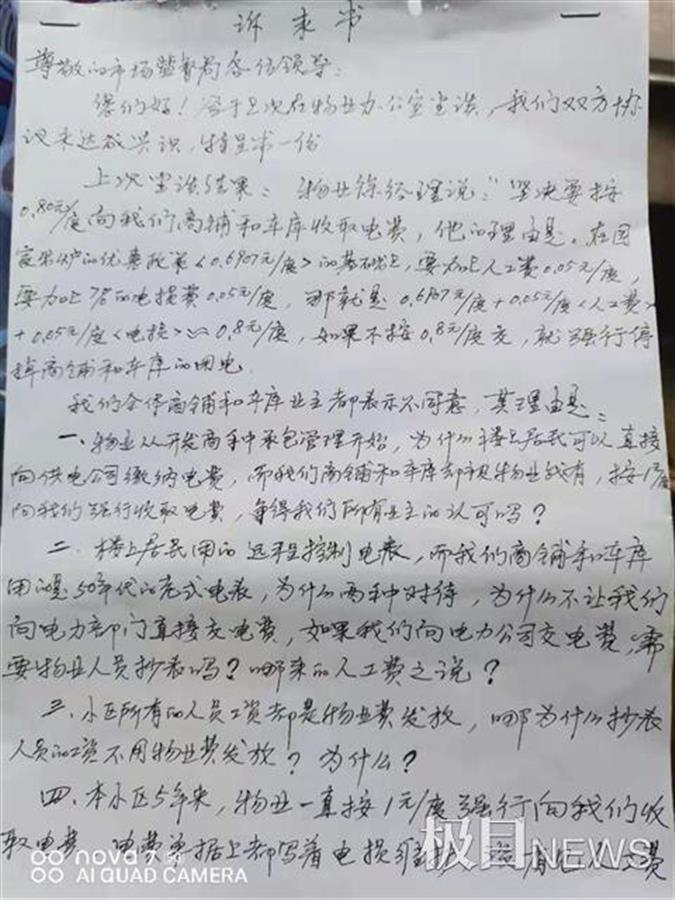 诉求书
尊敬的市场监督局各位领导:
您们好!鉴于上次在物业办公室座谈,我们双方协
议未达成共识,特呈第一份
上次座谈结果:物业徐经理说:"坚决要按
0.80元/度向我们商铺和车库收取电费,他的理由是,在国
家给的优惠政策<0.6907元/度>的基础上,要加上人工费0.05元/度,
要加上7%的电损费0.05元/度,那就是0.6907元/度+0.05元/度<人工费>
+0.05元/度<电损>≈0.8元/度,如果不按0.8元/度交,就强行停
掉商铺和车库的用电
我们全体商铺和车库业主都表示不同意,其理由是:
一、物业从开发商手中承包管理开始,为什么楼上居民可以直接
向供电公司缴纳电费,而我们商铺和车库却被物业,按1元/度
向我们强行收取电费,争得我们所有业主的认可吗?
二、楼上居民用的远程控制电表,而我们商铺和车库
用的是50年代的老式电表,为什么两种对待,为什么不让我们
向电力部门直接交电费,如果我们向电力公司交电费,需
要物业人员抄表吗?哪来的人工费之说?
三、小区所有的人员工资都是物业费发放,哪为什么抄表
人员的工资不用物业费发放?为什么?
四、本小区5年来,物业一直按1元/度强行向我们收
取电费,电费单据上都写着电损
极目NEWS
nova
AI QUAD CAMERA